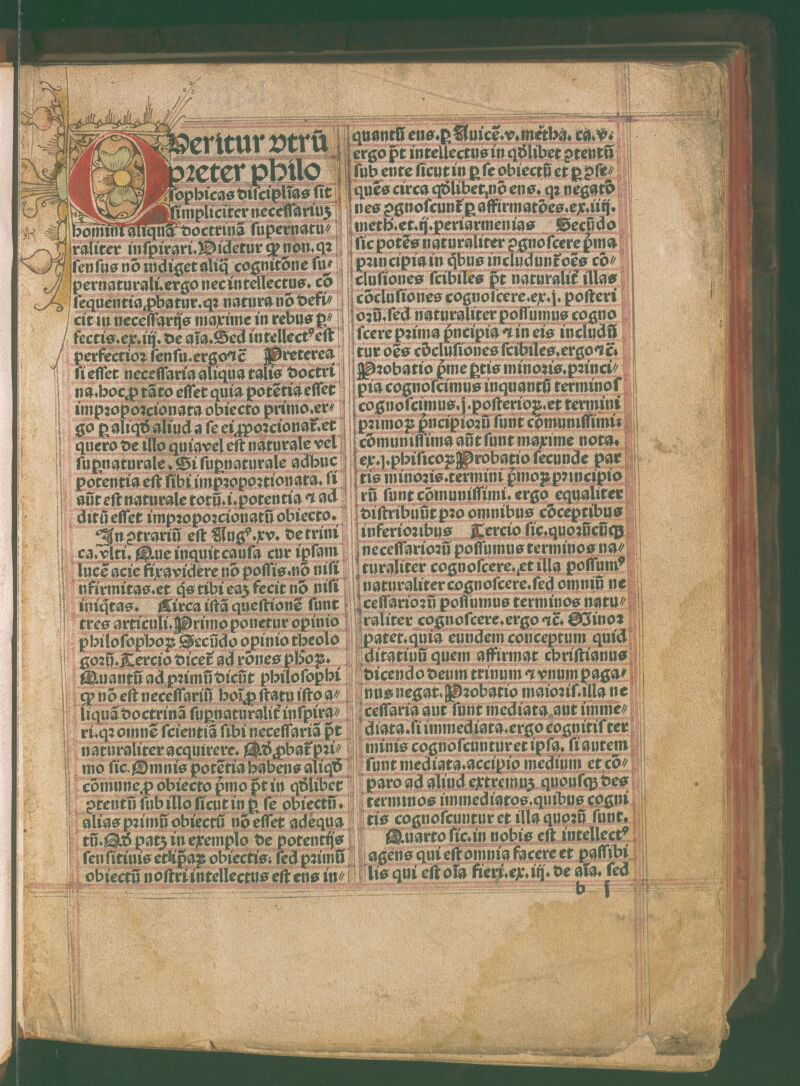 QVeritur vtrū
preter philo
sophicas disciplīas sit
simpliciter necessariuʒ
homini aliquā doctrinā supernatu⸗
raliter inspirari. Videtur ꝙ non. qꝛ
sensus nō indiget aliq̄ cognitōne su⸗
pernaturali. ergo nec intellectus. cō
sequentia ꝓbatur. qꝛ natura nō defi⸗
cit in necessarijs maxime in rebus ꝑ⸗
fectis. ex. iij. de aīa. Sed intellectꝰ est
perfectior sensu. ergo ⁊c̄ Preterea
si esset necessaria aliqua talis doctri
na. hoc ꝓ tāto esset quia potētia esset
improporcionata obiecto primo. er⸗
go ꝑ aliqd̄ aliud a se ei ꝓporcionat̄. et
quero de illo quia vel est naturale vel
suꝑnaturale. Si suꝑnaturale adhuc
potentia est sibi improportionata. si
aūt est naturale totū. i. potentia ⁊ ad
ditū esset improporcionatū obiecto.
In ꝯtrariū est Augꝰ. xv. de trini
ca. vlti. Que inquit causa cur ipsam
lucē acie fixa videre nō possis. nō nisi
nfirmitas. et q̄s tibi eaʒ fecit nō nisi
iniq̄tas. Circa istā questionē sunt
tres articuli. Primo ponetur opinio
philosophoꝝ Secūdo opinio theolo
gorū. Tercio dicet̄ ad rōnes phoꝝ.
Quantū ad primū dicūt philosophi
ꝙ nō est necessariū hoī ꝓ statu isto a⸗
liquā doctrinā suꝑnaturalit̄ inspira⸗
ri. qꝛ omnē scientiā sibi necessariā p̄t
naturaliter acquirere. Qd̄ ꝓbat̄ pri⸗
mo sic. Omnis potētia habens aliqd̄
cōmune ꝓ obiecto p̄mo p̄t in qd̄libet
ꝯtentū sub illo sicut in ꝑ se obiectū.
alias primū obiectū nō esset adequa
tū. Qd̄ patʒ in exemplo de potentijs
sensitiuis et ip̄aꝝ obiectis: sed primū
obiectū nostri intellectus est ens in⸗
quantū ens. ꝑ Auicē. v. metha. ca. v.
ergo p̄t intellectus in qd̄libet ꝯtentū
sub ente sicut in ꝑ se obiectū et ꝑ ꝯse⸗
quēs circa qd̄libet nō ens. qꝛ negatō
nes ꝯgnoscunt̄ ꝑ affirmatōes. ex. iiij.
meth. et. ij. periarmenias Secūdo
sic potēs naturaliter ꝯgnoscere p̄ma
principia in qb̄us includunt̄ oēs cō⸗
clusiones scibiles p̄t naturalit̄ illas
cōclusiones cognoscere. ex. j. posteri
orū. sed naturaliter possumus cogno
scere prima p̄ncipia ⁊ in eis includū
tur oēs cōclusiones scibiles. ergo ⁊c̄.
Probatio p̄me ꝑtis minoris. princi⸗
pia cognoscimus inquantū terminos
cognoscimus. j. posterioꝝ. et termini
primoꝝ p̄ncipiorū sunt cōmunissimi:
cōmunissima aūt sunt maxime nota.
ex. j. phisicoꝝ Probatio secunde par
tis minoris. termini p̄moꝝ principio
rū sunt cōmunissimi. ergo equaliter
distribuūt pro omnibus cōceptibus
inferioribus Tercio sic. quorūcūqꝫ
necessariorū possumus terminos na⸗
turaliter cognoscere. et illa possumꝰ
naturaliter cognoscere. sed omniū ne
cessariorū possumus terminos natu⸗
raliter cognoscere. ergo ⁊c̄. Minor
patet. quia eundem conceptum quid
ditatiuū quem affirmat christianus
dicendo deum trinum ⁊ vnum paga⸗
nus negat. Probatio maioris. illa ne
cessaria aut sunt mediata aut imme⸗
diata. si immediata. ergo cognitis ter
minis cognoscuntur et ipsa. si autem
sunt mediata. accipio medium et cō⸗
paro ad aliud extremuʒ quousqꝫ des
terminos immediatos. quibus cogni
tis cognoscuntur et illa quorū sunt.
Quarto sic. in nobis est intellectꝰ
agens qui est omnia facere et passibi
lis qui est oīa fieri. ex. iij. de aīa. sed
b j